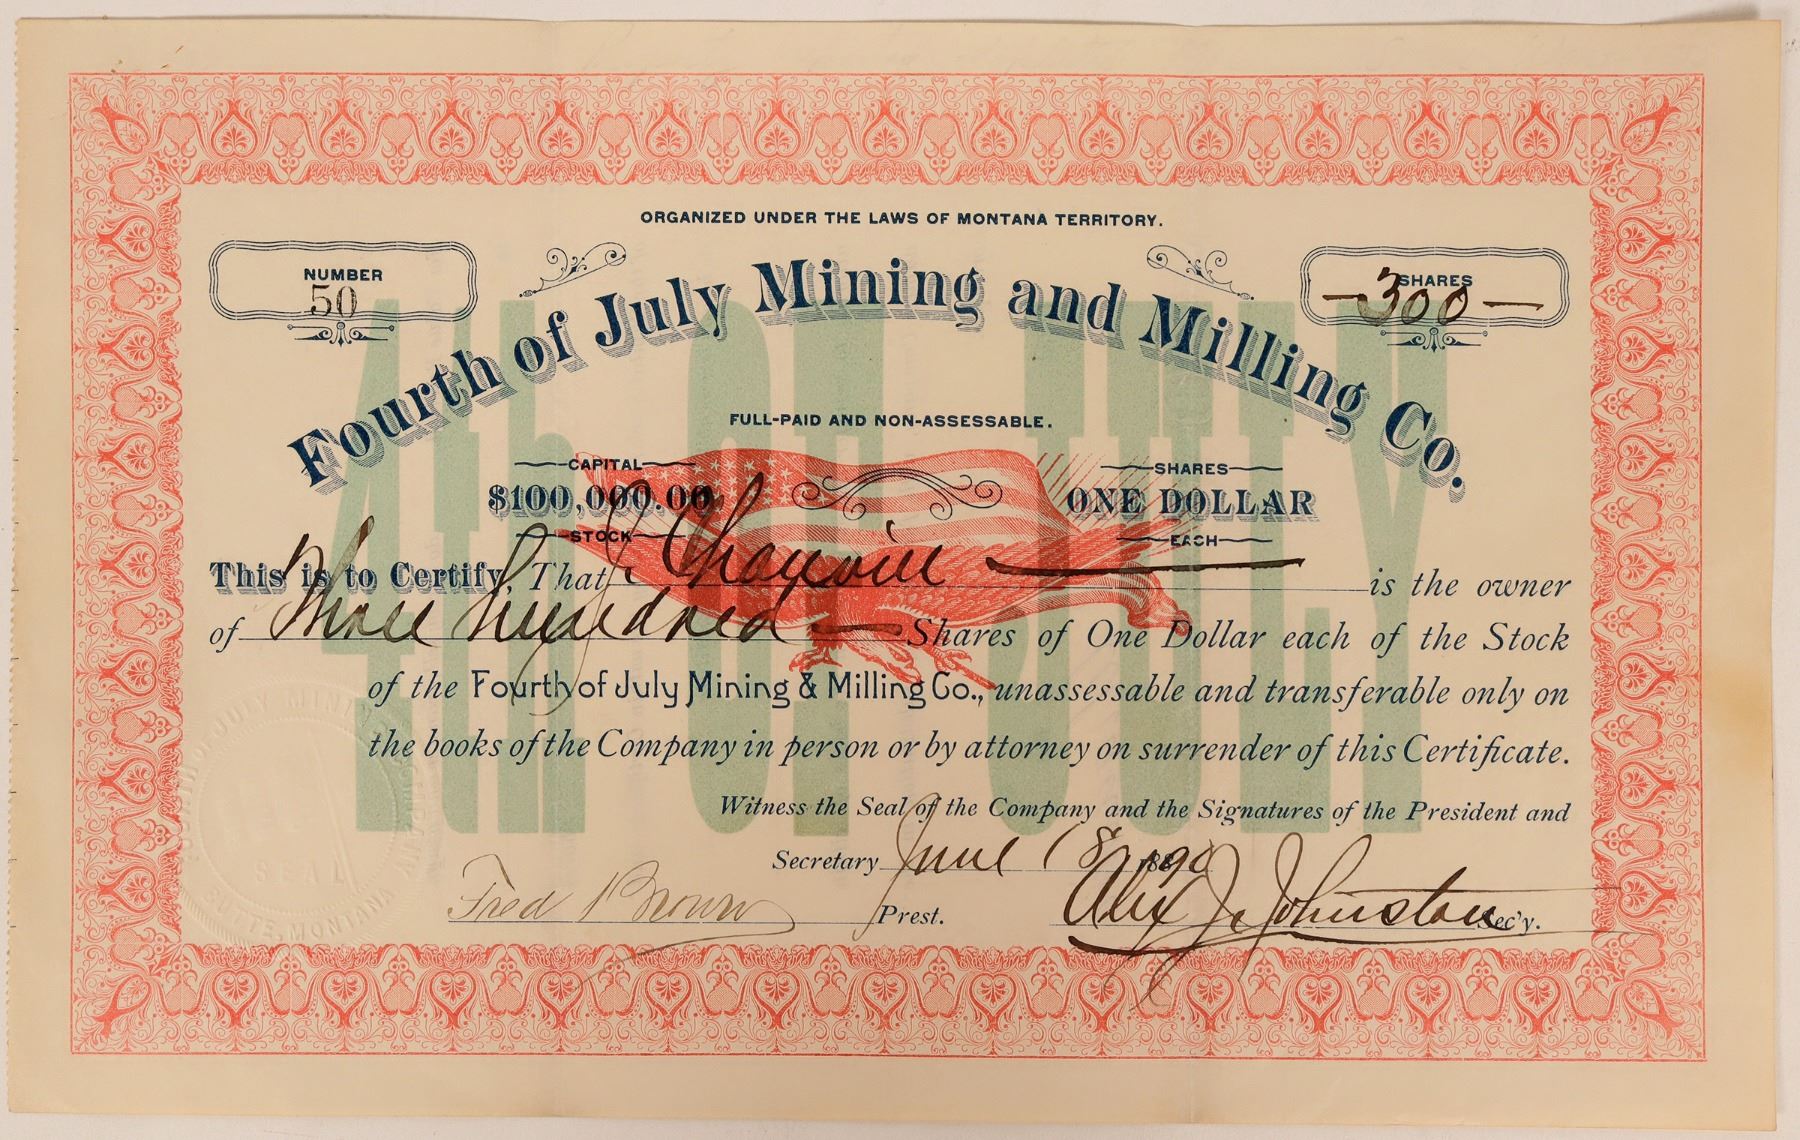 ORGANIZED UNDER THE LAWS OF MONTANA TERRITORY.
NUMBER
50
SHARES
—300—
Fourth of July Mining and Milling Co.
4th OF JULY
FULL-PAID AND NON-ASSESSABLE.
CAPITAL
$100,000.00
STOCK
SHARES
ONE DOLLAR
EACH
This is to Certify, That J Chauvin is the owner
of Three hundred Shares of One Dollar each of the Stock
of the Fourth of July Mining & Milling Co., unassessable and transferable only on
the books of the Company in person or by attorney on surrender of this Certificate.
Witness the Seal of the Company and the Signatures of the President and
Secretary June 18 1890
Fred Brown Prest. Alex J. Johnston Sec'y.
FOURTH OF JULY MINING
SEAL
BUTTE, MONTANA